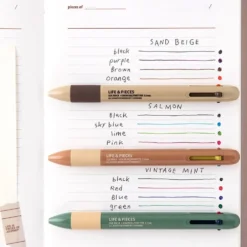 pieces of
SAND BEIGE
black
purple
Brown
orange
LIFE & PIECES
SALMON
black
sky blue
lime
Pink
LIFE & PIECES
VINTAGE MINT
black
Red
Blue
green
LIFE & PIECES